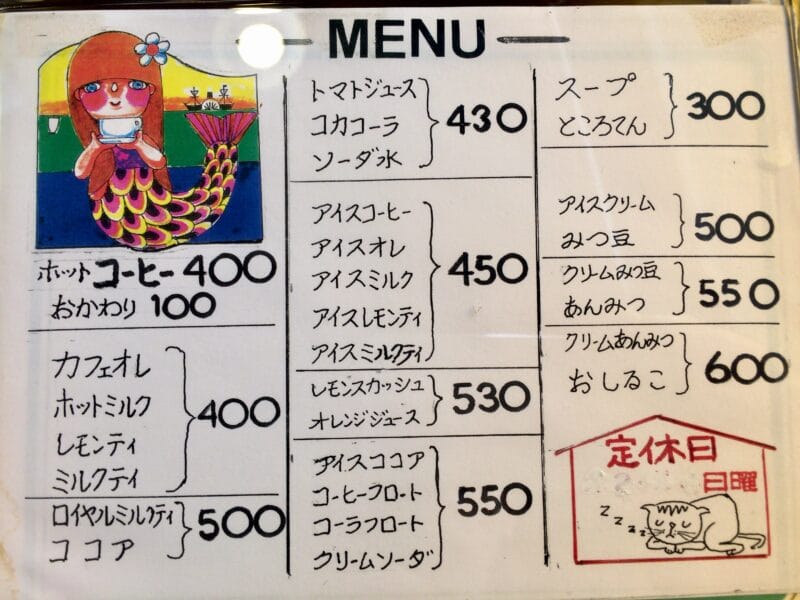 MENU
ホットコーヒー 400
おかわり 100
カフェオレ
ホットミルク
レモンティ
ミルクティ
400
ロイヤルミルクティ
ココア
500
トマトジュース
コカコーラ
ソーダ水
430
アイスコーヒー
アイスオレ
アイスミルク
アイスレモンティ
アイスミルクティ
450
レモンスカッシュ
オレンジジュース
530
アイスココア
コーヒーフロート
コーラフロート
クリームソーダ
550
スープ
ところてん
300
アイスクリーム
みつ豆
500
クリームみつ豆
あんみつ
550
クリームあんみつ
おしるこ
600
定休日
日曜
z z z z